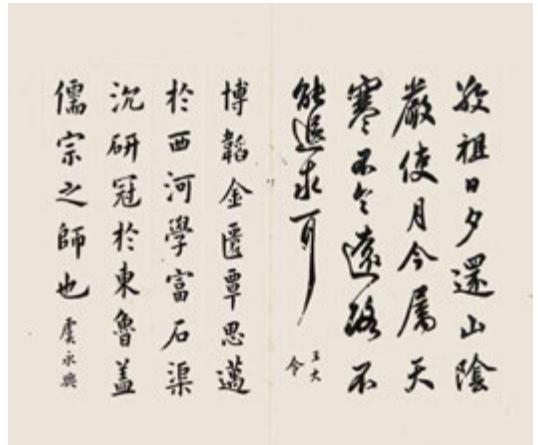 敬祖日夕還山陰
嚴使月今屬天
寒不令遠路不
能退求可
王大令
博韜金匱覃思邁
於西河學富石渠
沉研冠於東魯蓋
儒宗之師也 虞永興